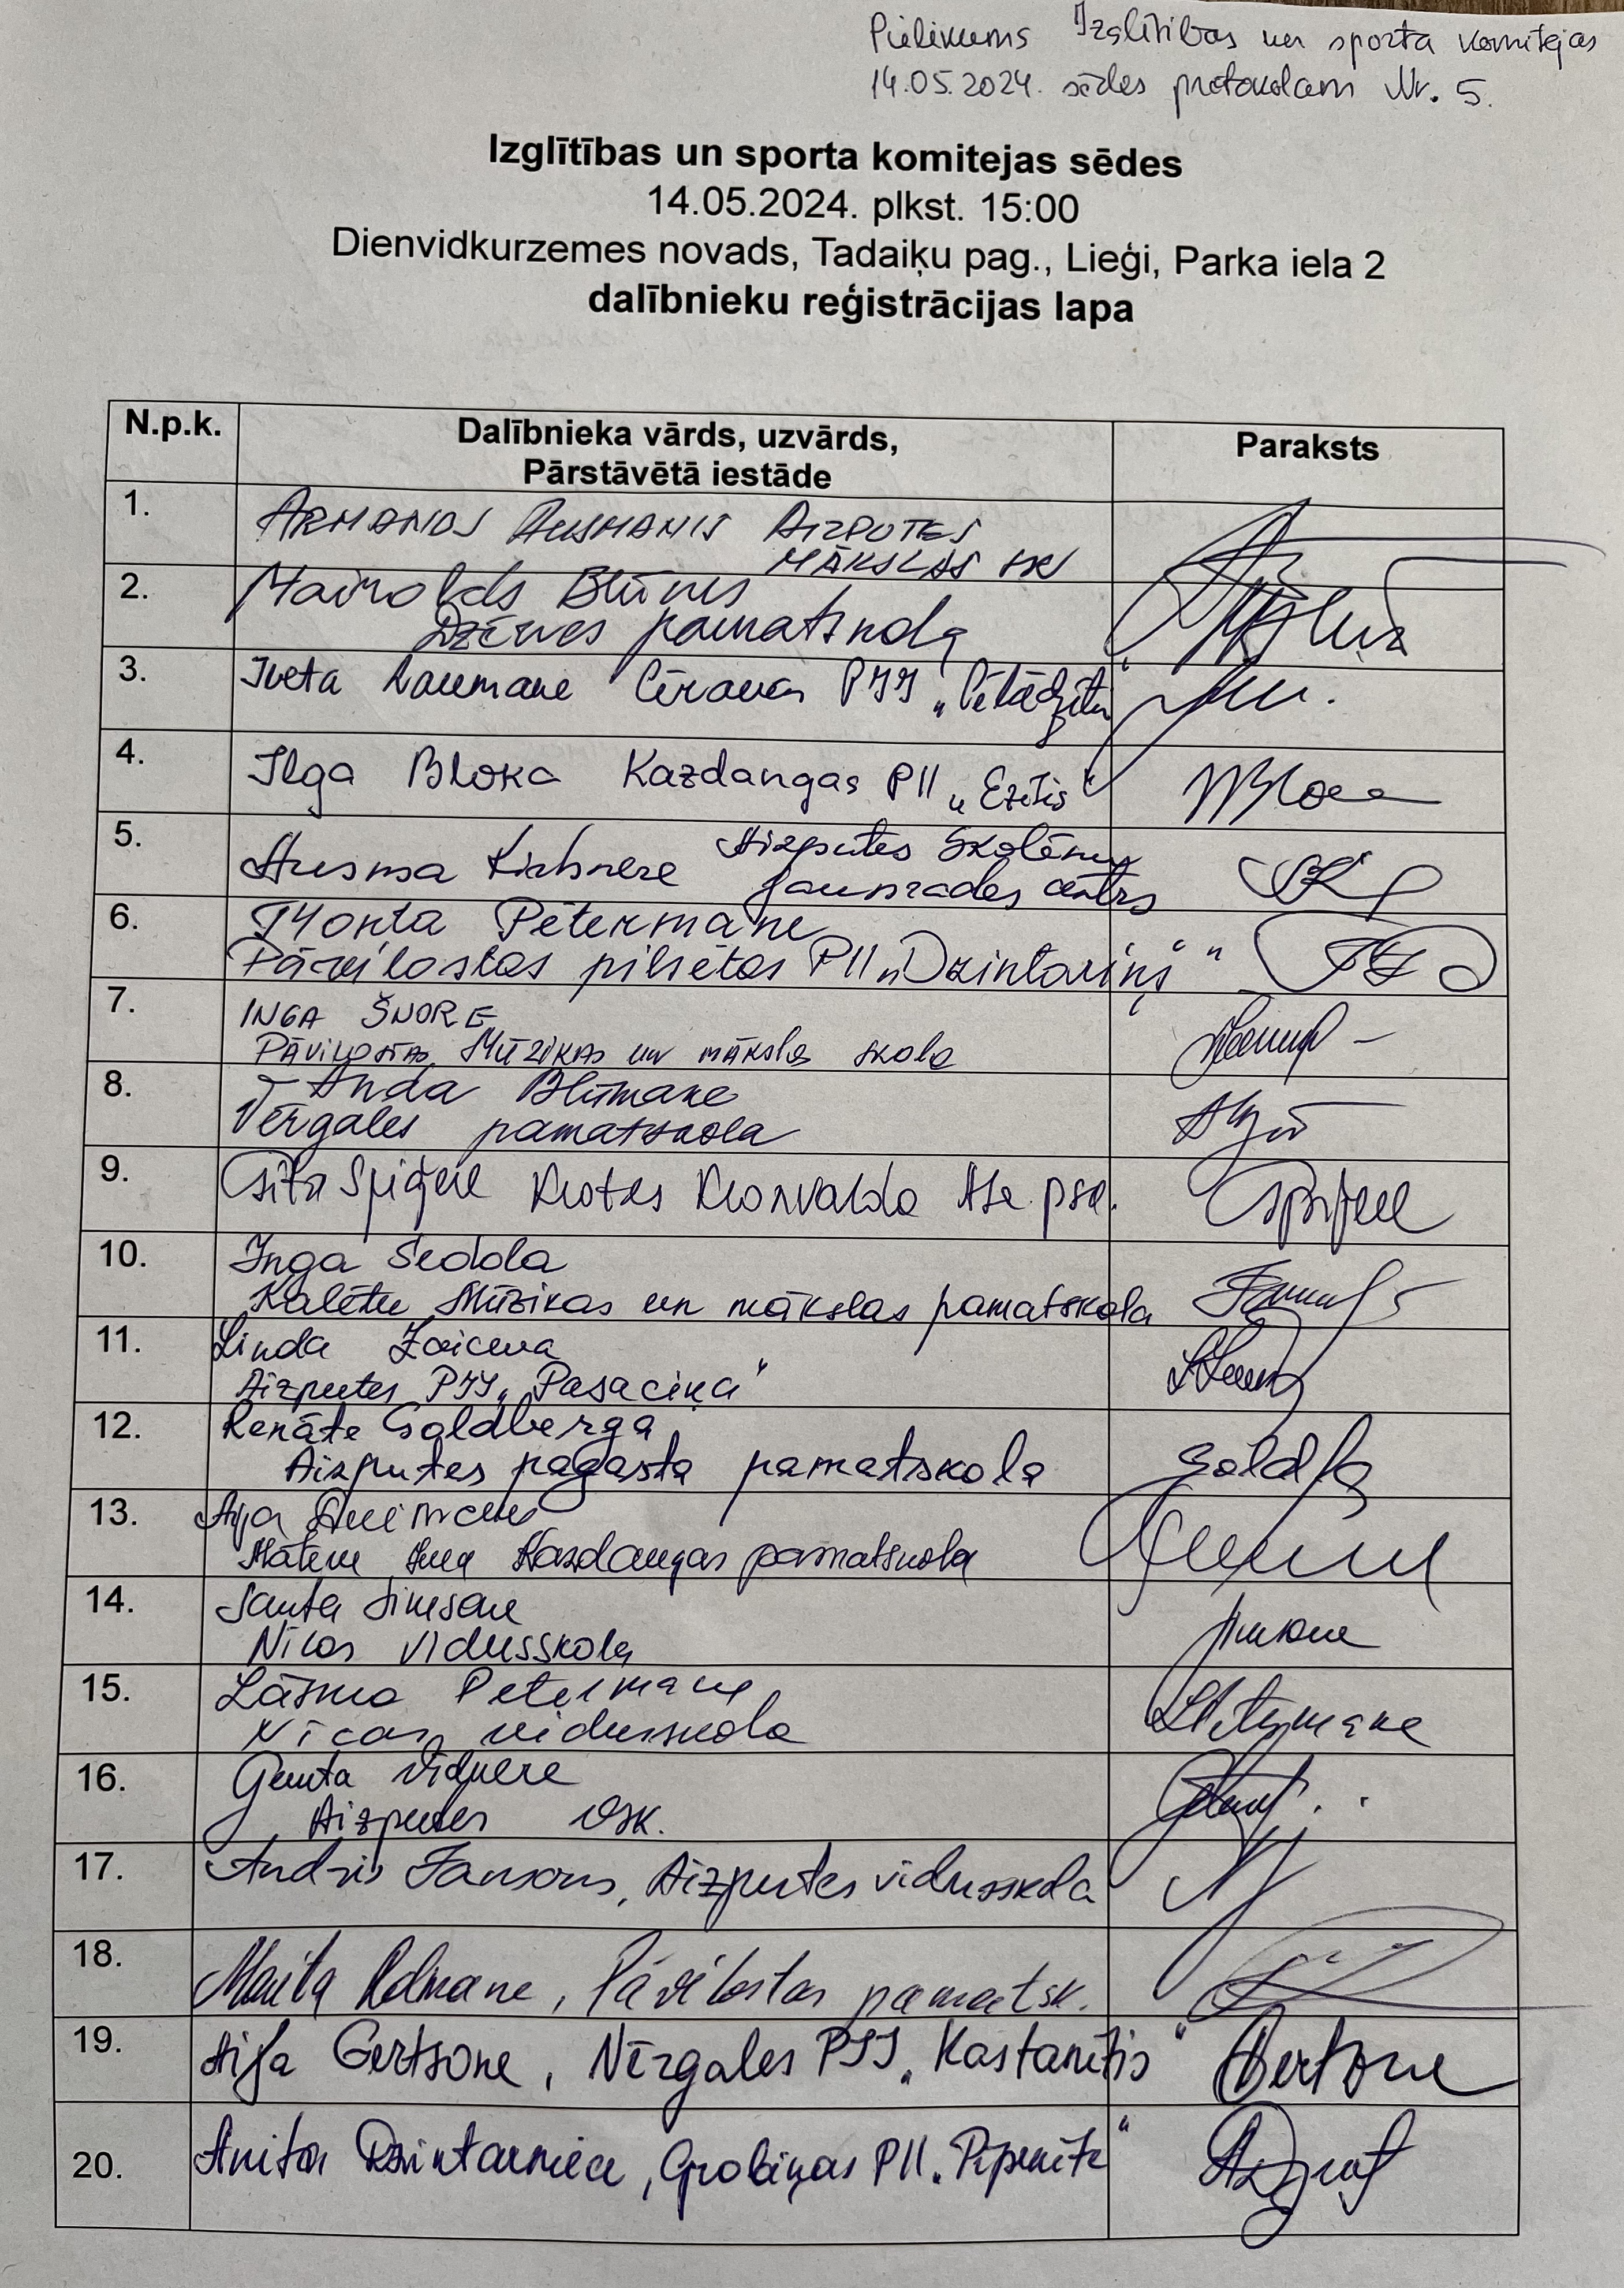 Pielikums Izglītības un sporta komitejas
14.05.2024. sēdes protokolam Nr. 5.
Izglītības un sporta komitejas sēdes
14.05.2024. plkst. 15:00
Dienvidkurzemes novads, Tadaiķu pag., Lieģi, Parka iela 2
dalībnieku reģistrācijas lapa
N.p.k. Dalībnieka vārds, uzvārds, Paraksts
Pārstāvētā iestāde
1. ARMANDS AUSMANIS AIZPUTES
MĀKSLAS SK
2. Mairolds Blūms
Dzērves pamatskola
3. Iveta Laumane Cīravas PII „Pīlādzītis"
4. Ilga Bloka Kazdangas PII „Ezītis"
5. Ausma Kirhnere Aizputes Skolēnu
jaunrades centrs
6. Monta Pētermane
Pāvilostas pilsētas PII „Dzintariņš"
7. INGA ŠNORE
PĀVILOSTAS MŪZIKAS un mākslas skola
8. Anda Blūmane
Vērgales pamatskola
9. Gita Spiģere Krotes Kronvalda Ata psk.
10. Inga Sedola
Kalētu Mūzikas un mākslas pamatskola
11. Linda Zaiceva
Aizputes PII „Pasaciņa"
12. Renāte Goldberga
Aizputes pagasta pamatskola
13. Aija
Māteru Jura Kazdangas pamatskola
14. Santa Simsone
Nīcas vidusskola
15. Lāsma Petermane
Nīcas vidusskola
16. Gunta Vidnere
Aizputes vsk.
17. Andris Jansons, Aizputes vidusskola
18. Marita Redmane, Pāvilostas pamatsk.
19. Aija Gertsone, Vērgales PII „Kastanītis"
20. Anita Dzintarniece, Grobiņas PII „Pīpenīte"